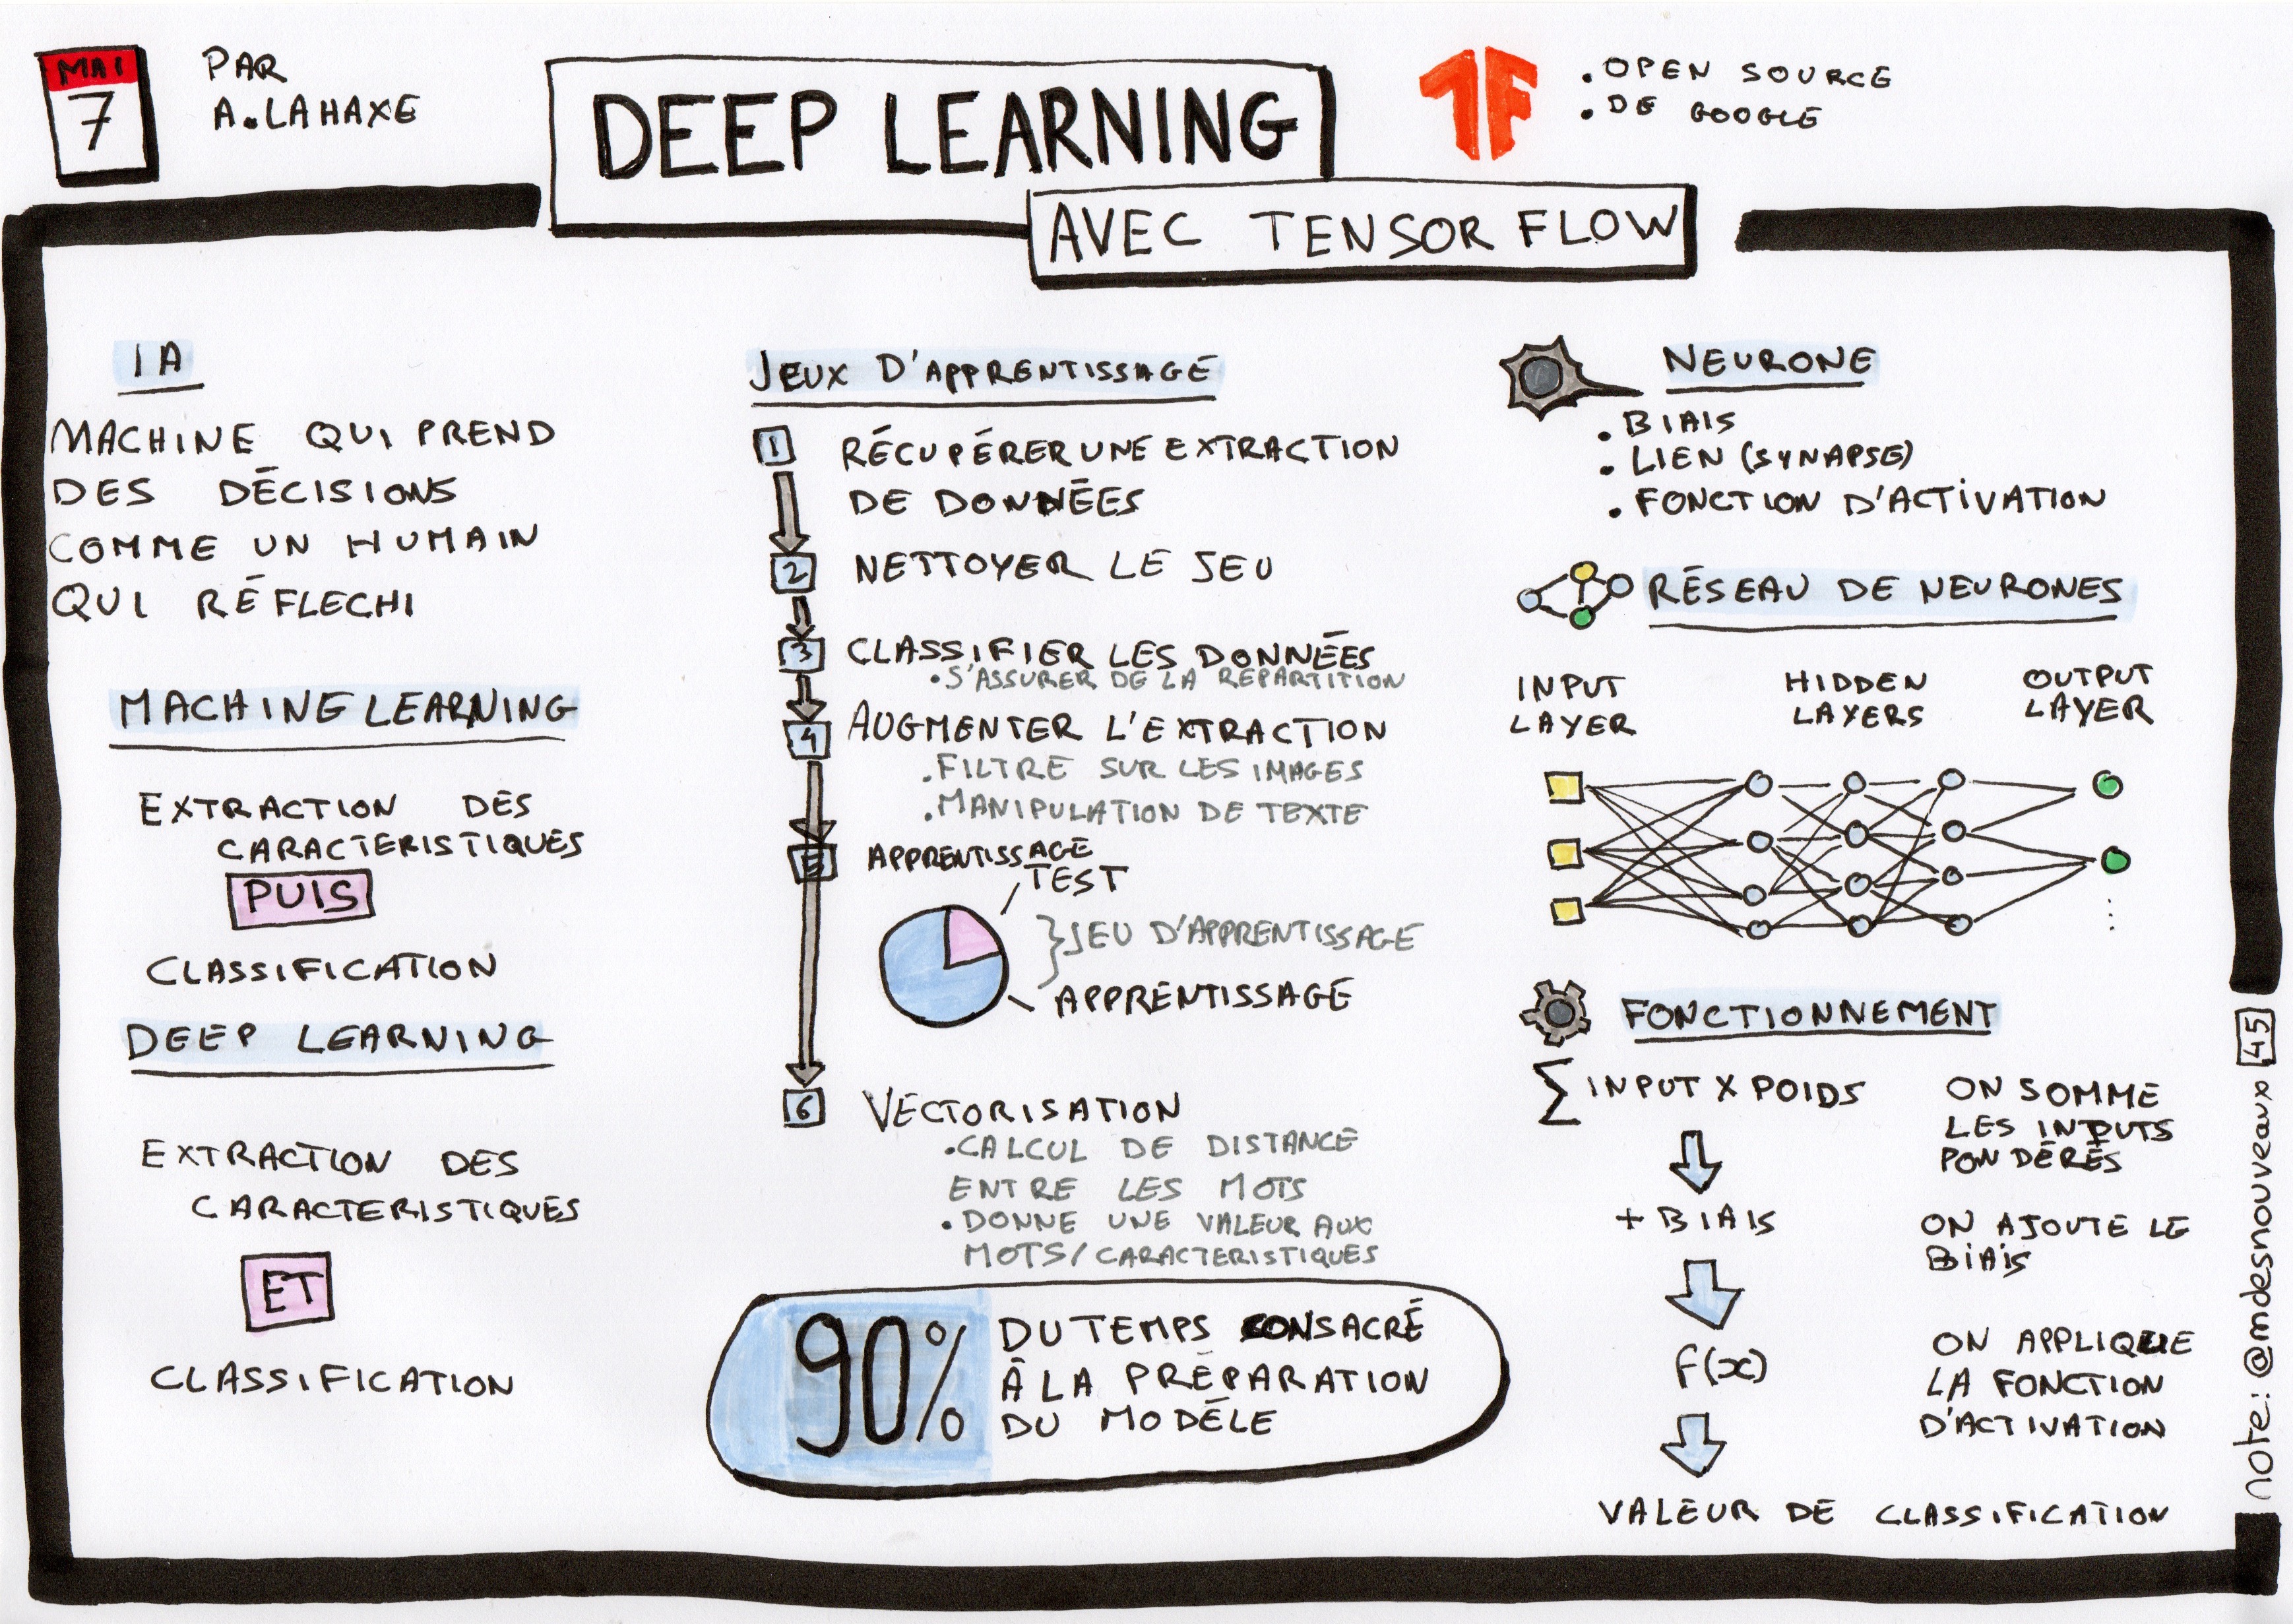 MAI
7
PAR
A.LAHAXE
DEEP LEARNING
AVEC TENSOR FLOW
TF
. OPEN SOURCE
. DE GOOGLE
IA
MACHINE QUI PREND
DES DÉCISIONS
COMME UN HUMAIN
QUI RÉFLECHI
MACHINE LEARNING
EXTRACTION DES
CARACTERISTIQUES
PUIS
CLASSIFICATION
DEEP LEARNING
EXTRACTION DES
CARACTERISTIQUES
ET
CLASSIFICATION
JEUX D'APPRENTISSAGE
1 RÉCUPÉRER UNE EXTRACTION
DE DONNÉES
2 NETTOYER LE JEU
3 CLASSIFIER LES DONNÉES
. S'ASSURER DE LA REPARTITION
4 AUGMENTER L'EXTRACTION
. FILTRE SUR LES IMAGES
. MANIPULATION DE TEXTE
5 APPRENTISSAGE
TEST
} JEU D'APPRENTISSAGE
APPRENTISSAGE
6 VECTORISATION
. CALCUL DE DISTANCE
ENTRE LES MOTS
. DONNE UNE VALEUR AUX
MOTS/CARACTERISTIQUES
90% DU TEMPS CONSACRÉ
À LA PRÉPARATION
DU MODÈLE
NEURONE
. BIAIS
. LIEN (SYNAPSE)
. FONCTION D'ACTIVATION
RÉSEAU DE NEURONES
INPUT
LAYER
HIDDEN
LAYERS
OUTPUT
LAYER
...
FONCTIONNEMENT
∑ INPUT X POIDS
ON SOMME
LES INPUTS
PONDÉRÉS
+ BIAIS
ON AJOUTE LE
BIAIS
F(x)
ON APPLIQUE
LA FONCTION
D'ACTIVATION
VALEUR DE CLASSIFICATION
note: @mdesnouveaux 45